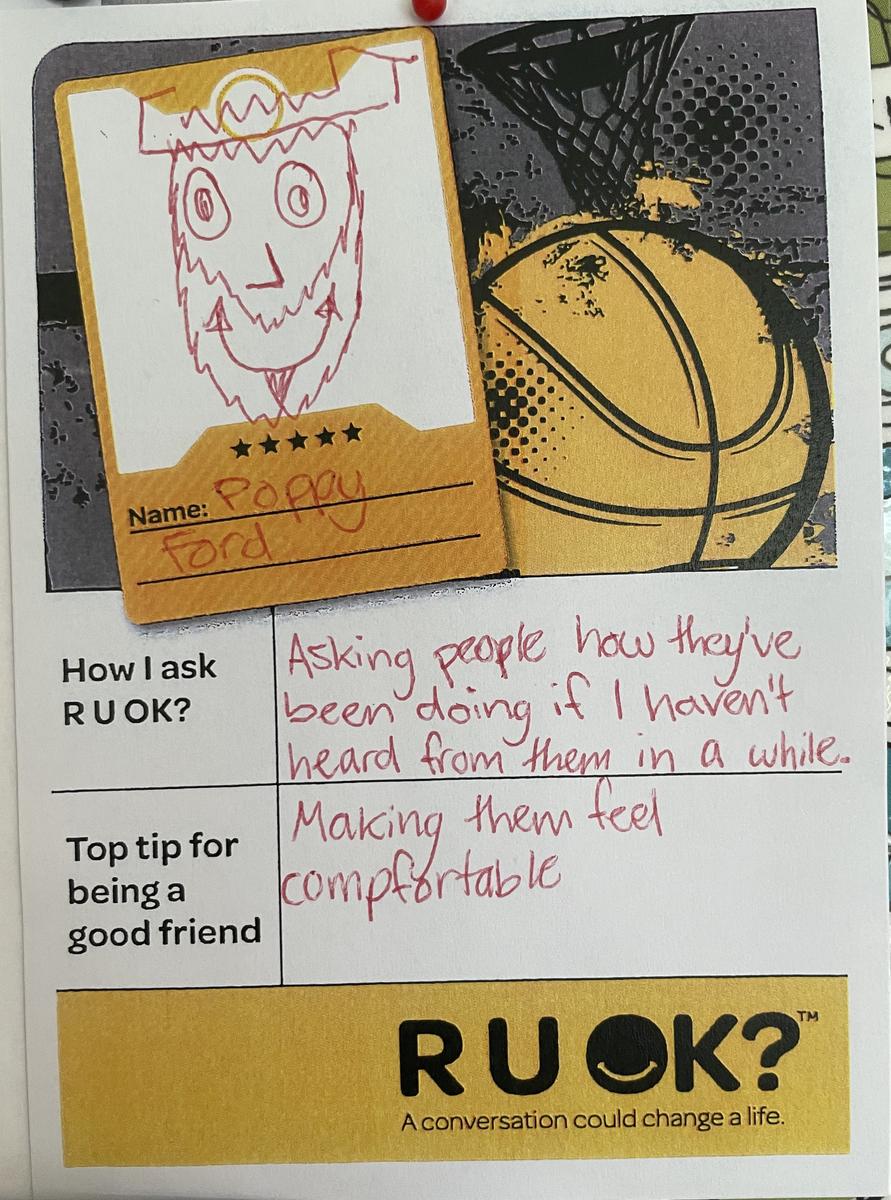 Name: Poppy
Ford
How I ask
R U OK?
Asking people how they've
been doing if I haven't
heard from them in a while.
Top tip for
being a
good friend
Making them feel
compfortable
R U OK?™
A conversation could change a life.